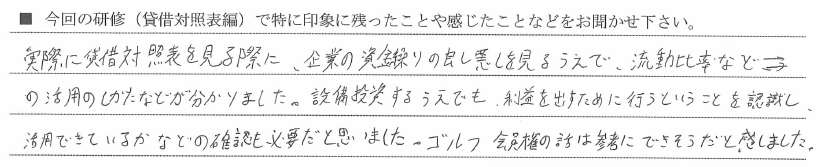 ■ 今回の研修（貸借対照表編）で特に印象に残ったことや感じたことなどをお聞かせ下さい。
実際に貸借対照表を見る際に、企業の資金繰りの良し悪しを見るうえで、流動比率など
の活用のしかたなどが分かりました。設備投資するうえでも、利益を出すために行うということを認識し、
活用できているかなどの確認も必要だと思いました。ゴルフ会員権の話は参考にできそうだと感じました。